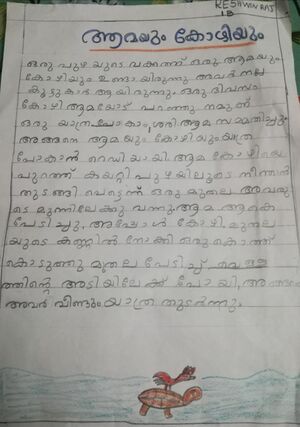 KESHWIN RAJ
1B
ആമയും കോഴിയും
ഒരു പുഴയുടെ വക്കത്ത് ഒരു ആമയും
കോഴിയും ഉണ്ടായിരുന്നു അവർ നല്ല
കൂട്ടുകാർ ആയിരുന്നു. ഒരു ദിവസം
കോഴി ആമയോട് പറഞ്ഞു നമുക്ക്
ഒരു യാത്ര പോകാം, ശരി ആമ സമ്മതിച്ചു
അങ്ങനെ ആമയും കോഴിയും യാത്ര
പോകാൻ റെഡിയായി. ആമ കോഴിയെ
പുറത്ത് കയറ്റി പുഴയിലൂടെ നീന്താൻ
തുടങ്ങി പെട്ടെന്ന് ഒരു മുതല അവരു
ടെ മുന്നിലേക്കു വന്നു. ആമ ആകെ
പേടിച്ചു, അപ്പോൾ കോഴി മുതല
യുടെ കണ്ണിൽ നോക്കി ഒരു കൊത്ത്
കൊടുത്തു മുതല പേടിച്ച് വെള്ള
ത്തിന്റെ അടിയിലേക്ക് പോയി, അങ്ങനെ
അവർ വീണ്ടും യാത്ര തുടർന്നു.